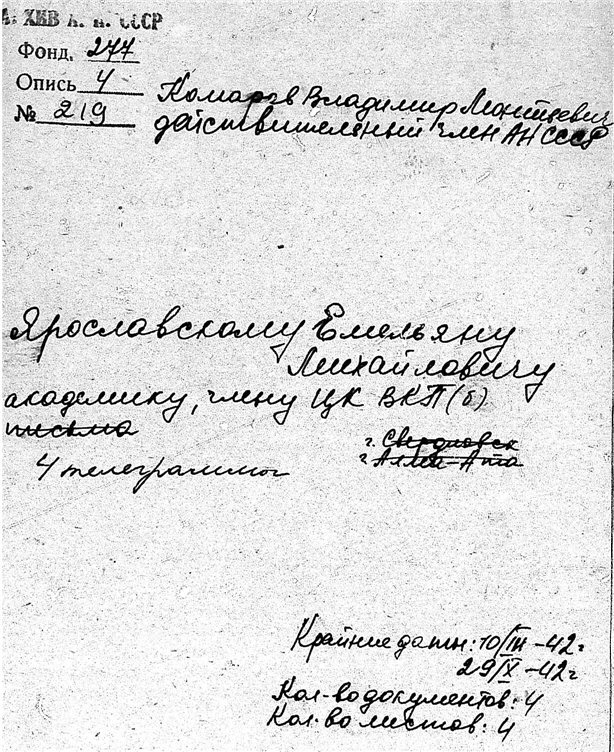 АРХИВ А. Н. СССР
Фонд. 277
Опись 4
№ 219
Комаров Владимир Леонтьевич
действительный член АН СССР
Ярославскому Емельяну
Михайловичу
академику, члену ЦК ВКП(б)
письма
г. Свердловск
г. Алма-Ата
4 телеграммы
Крайние даты: 10/III-42г
29/X-42г
Кол-во документов: 4
Кол-во листов: 4